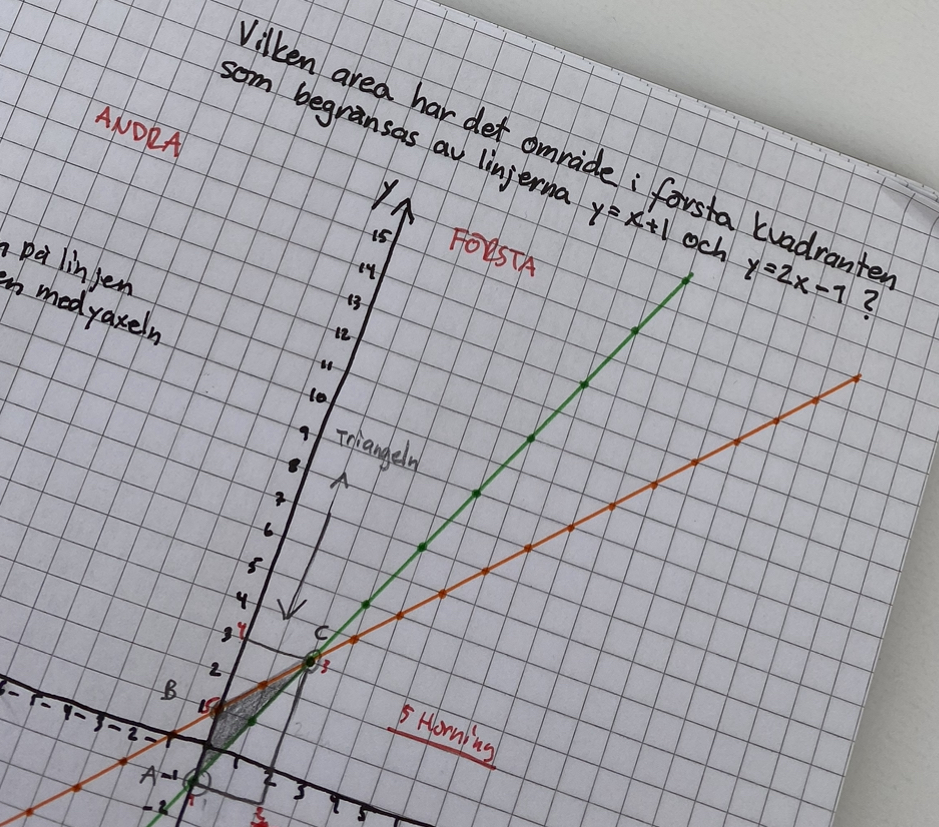 Vilken area har det område i första kvadranten
som begränsas av linjerna y=x+1 och y=2x-1 ?
ANDRA
y
FÖRSTA
15
14
13
12
11
10
9
8
7
6
5
4
3 4
2
på linjen
med yaxeln
Triangeln
A
C
3
B
5 Hörning
-5-4-3-2-1
1 2 3 4 5
A -1
-2
3